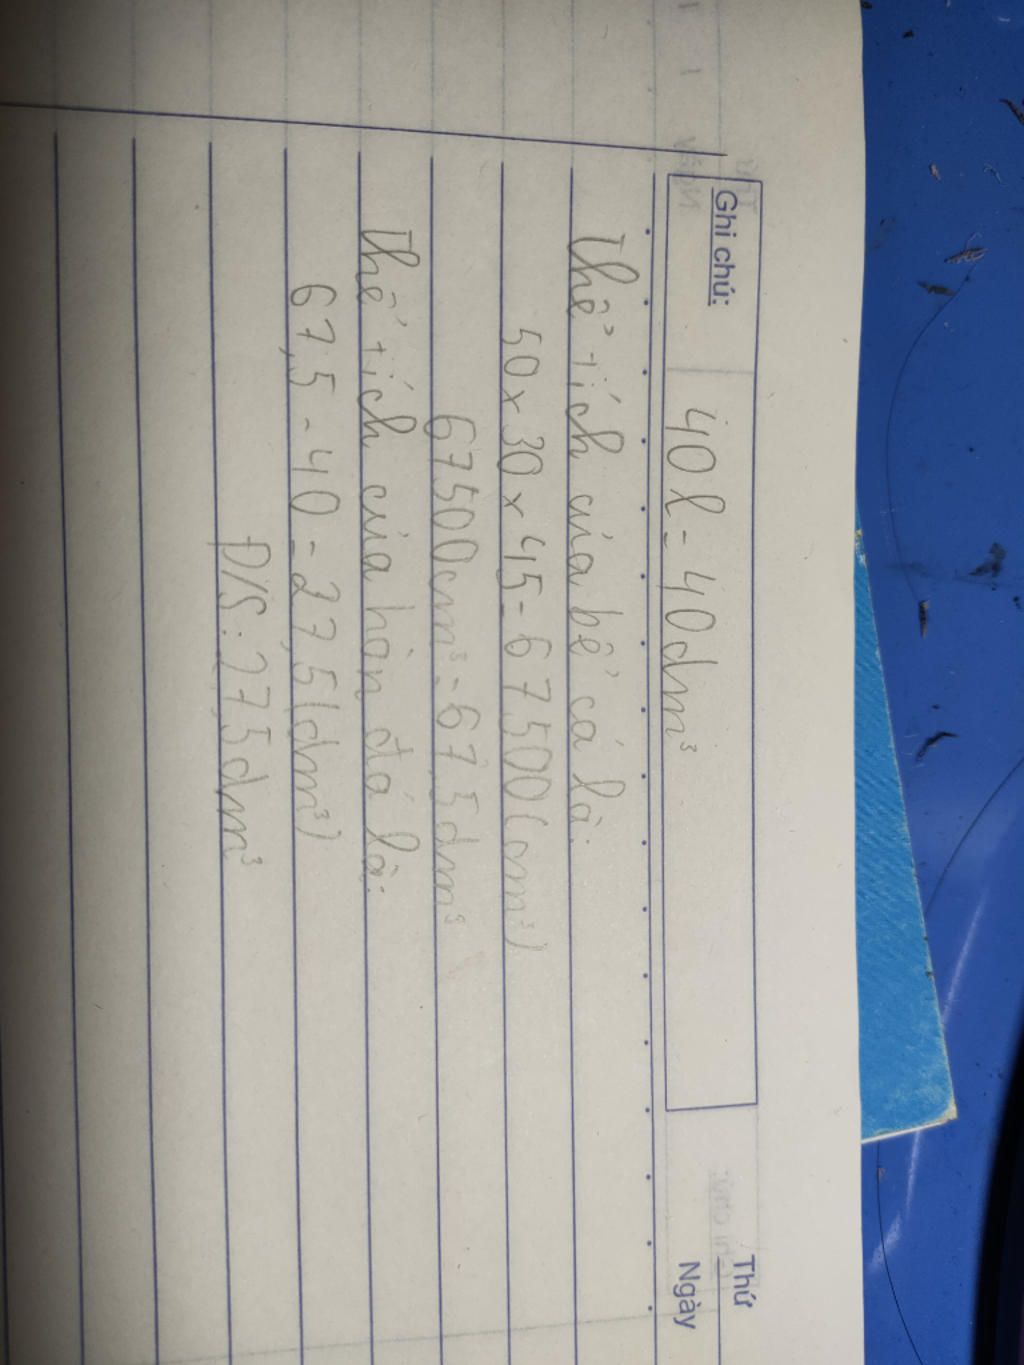 Thứ
Ngày
Ghi chú:
40l = 40dm³
Thể tích của bể cá là:
50 x 30 x 45 = 67500 (cm³)
67500cm³ = 67,5dm³
Thể tích của hòn đá là:
67,5 - 40 = 27,5 (dm³)
Đ/S: 27,5dm³